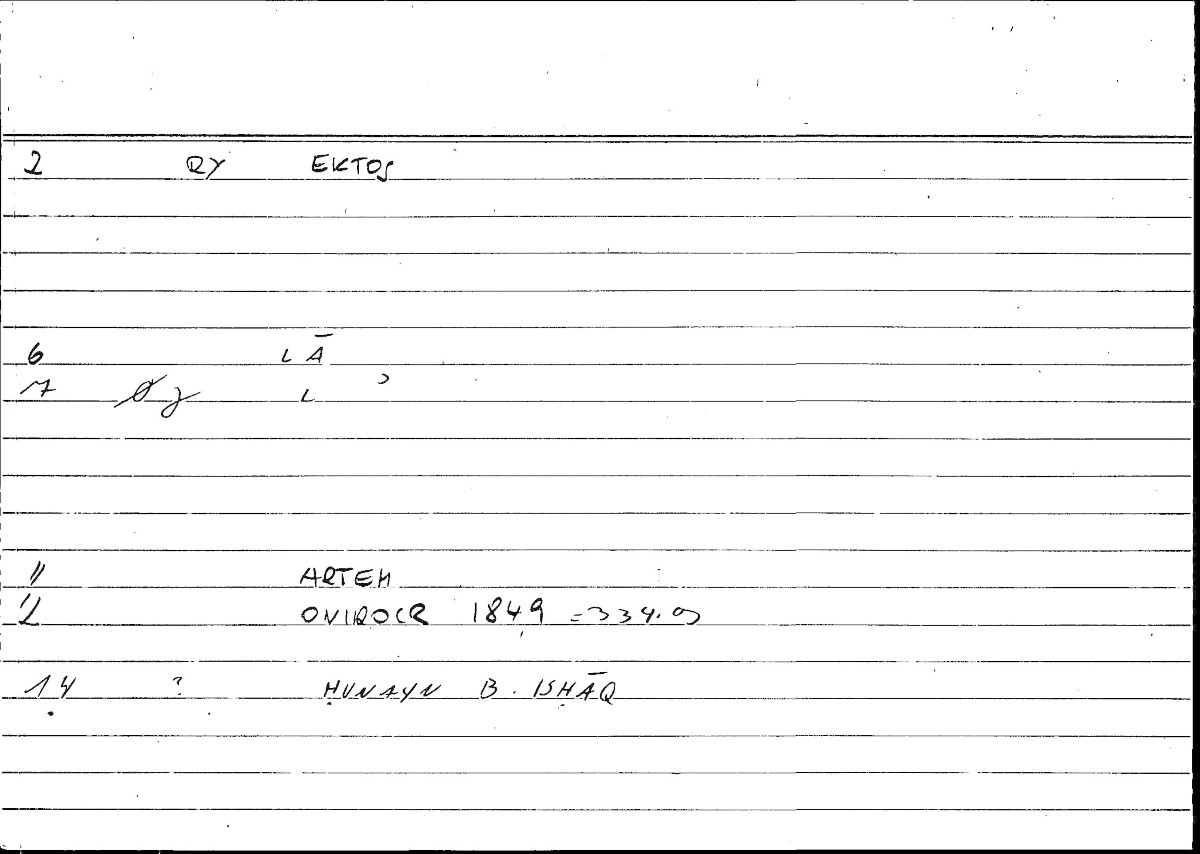 2 RY EKTOS
6 L Ā
7 L ʾ
11 ARTEM
12 ONIROCR 1849 = 334.9
14 ? ḤUNAYN B. ISḤĀQ